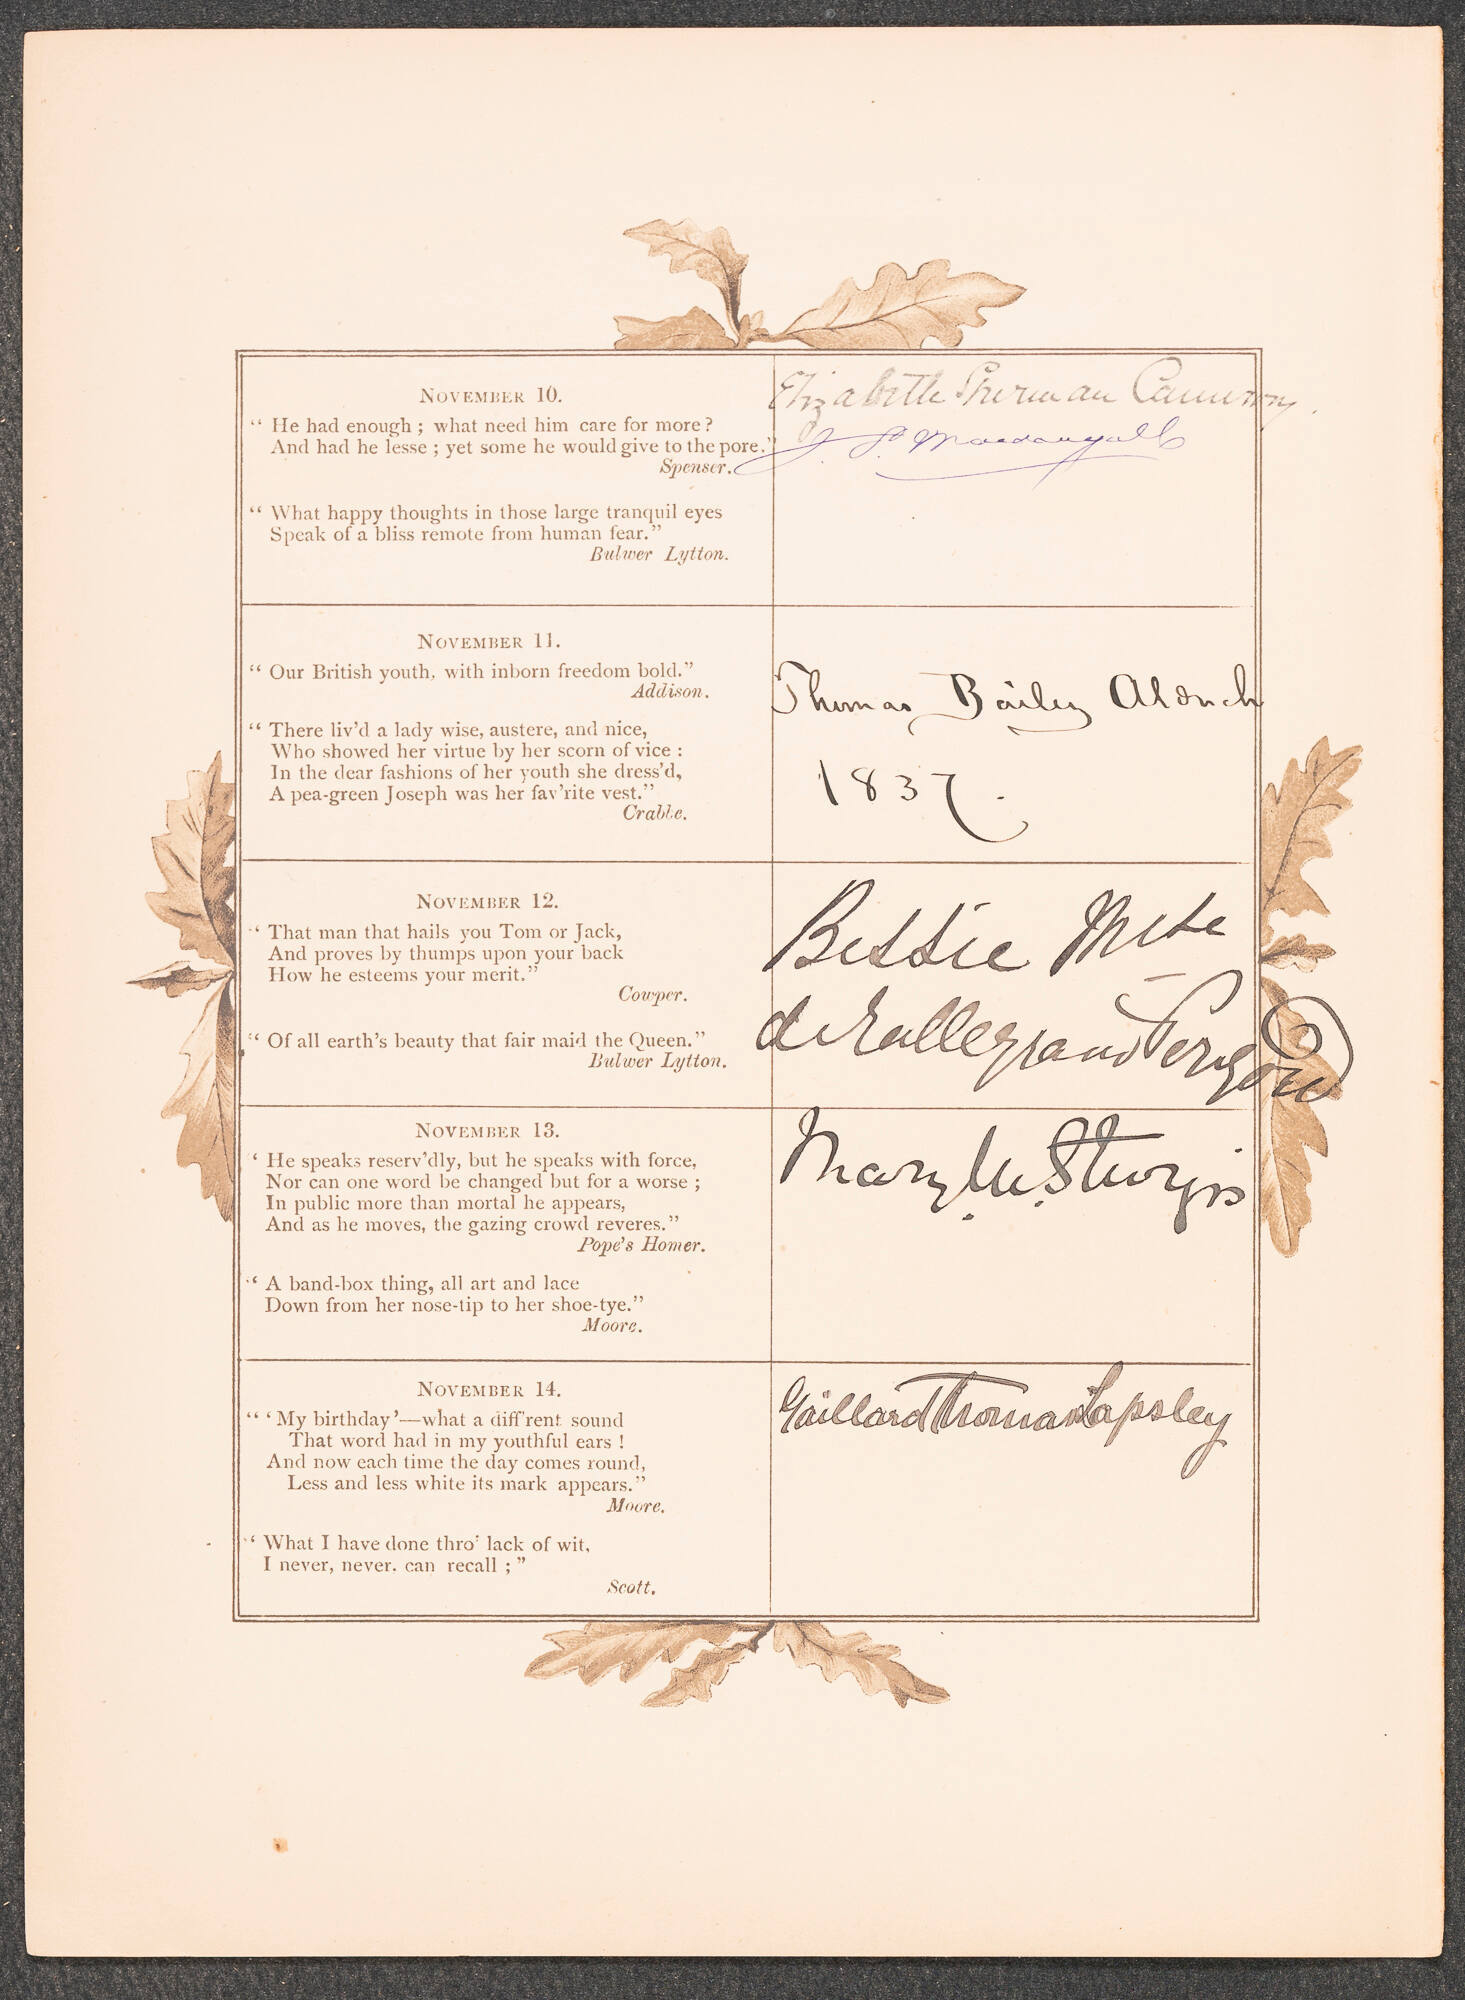 NOVEMBER 10.
“ He had enough ; what need him care for more ?
And had he lesse ; yet some he would give to the pore.”
Spenser.
“ What happy thoughts in those large tranquil eyes
Speak of a bliss remote from human fear.”
Bulwer Lytton.
Elizabeth Sherman Cameron.
NOVEMBER 11.
“ Our British youth, with inborn freedom bold.”
Addison.
“ There liv’d a lady wise, austere, and nice,
Who showed her virtue by her scorn of vice :
In the dear fashions of her youth she dress’d,
A pea-green Joseph was her fav’rite vest.”
Crabbe.
Thomas Bailey Aldrich
1837.
NOVEMBER 12.
“ That man that hails you Tom or Jack,
And proves by thumps upon your back
How he esteems your merit.”
Cowper.
“ Of all earth’s beauty that fair maid the Queen.”
Bulwer Lytton.
Bessie
de Talleyrand Perigord
NOVEMBER 13.
‘ He speaks reserv’dly, but he speaks with force,
Nor can one word be changed but for a worse ;
In public more than mortal he appears,
And as he moves, the gazing crowd reveres.”
Pope’s Homer.
“ A band-box thing, all art and lace
Down from her nose-tip to her shoe-tye.”
Moore.
Mary Sturgis
NOVEMBER 14.
“ ‘ My birthday ’—what a diff’rent sound
That word had in my youthful ears !
And now each time the day comes round,
Less and less white its mark appears.”
Moore.
“ What I have done thro’ lack of wit,
I never, never. can recall ; ”
Scott.
Gaillard Thomas Lapsley